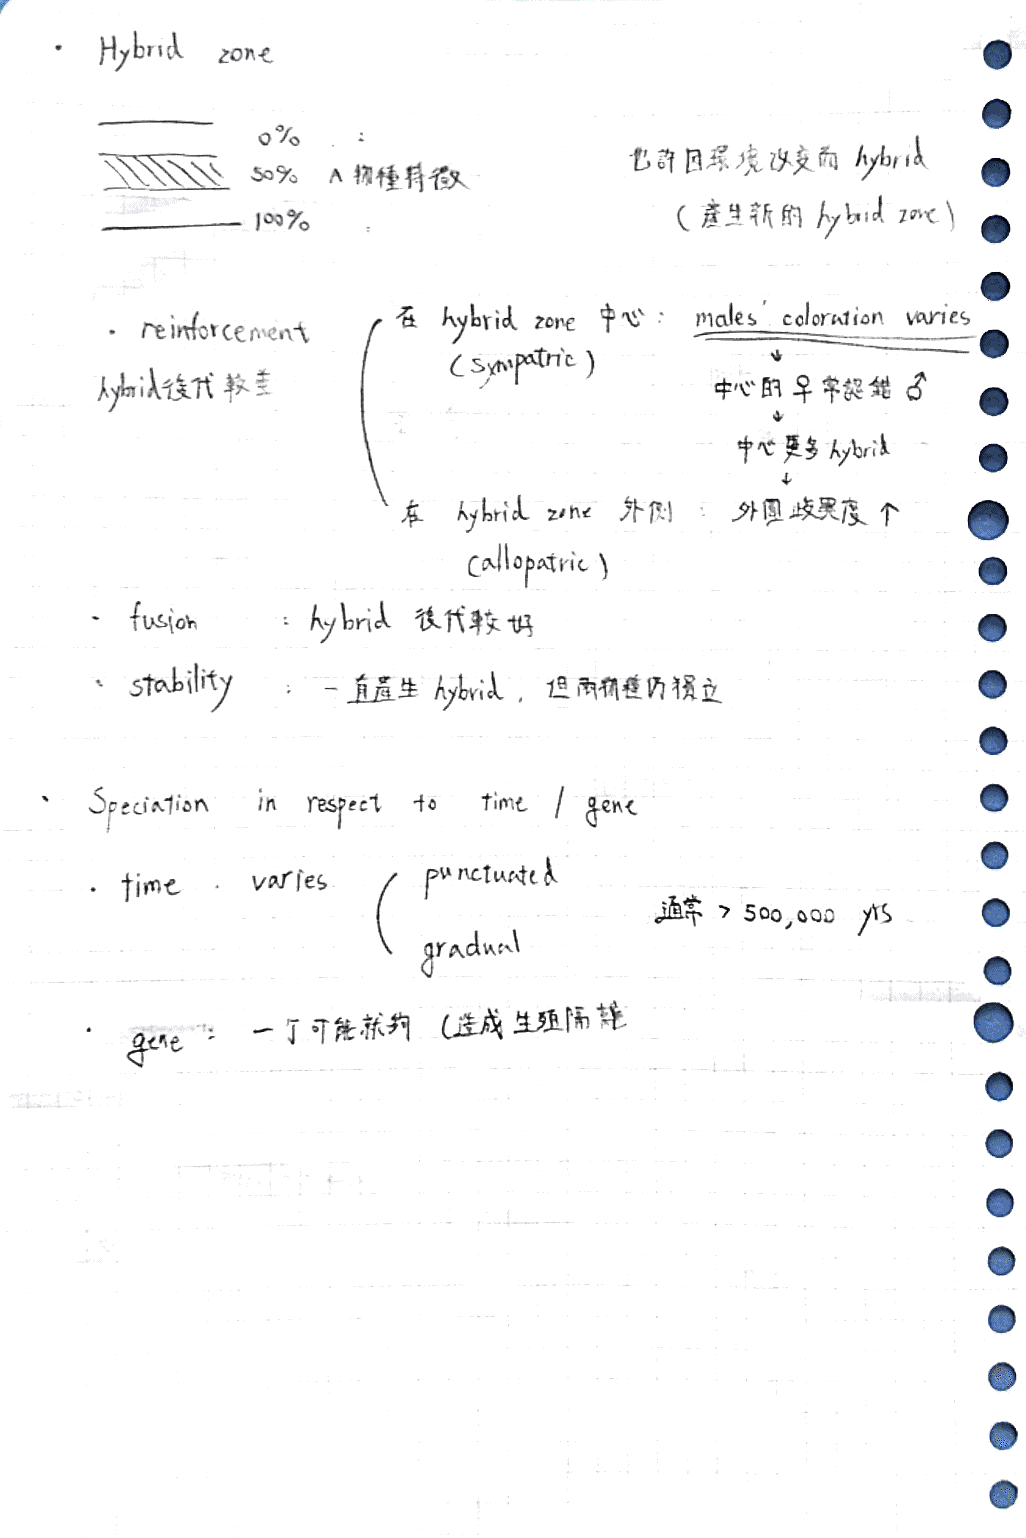 · Hybrid zone
0% :
50% A 物種特徵
100% :
也許因環境改變而 hybrid
(產生新的 hybrid zone)
· reinforcement
hybrid後代較差
在 hybrid zone 中心: males' coloration varies
(sympatric)
↓
中心的 ♀ 常認錯 ♂
↓
中心更多 hybrid
↓
在 hybrid zone 外側 : 外圍歧異度 ↑
(allopatric)
· fusion : hybrid 後代較好
· stability : 一直產生 hybrid, 但兩物種仍獨立
· Speciation in respect to time / gene
· time varies punctuated
gradual
通常 > 500,000 yrs
· gene : 一个可能就夠 (造成生殖隔離